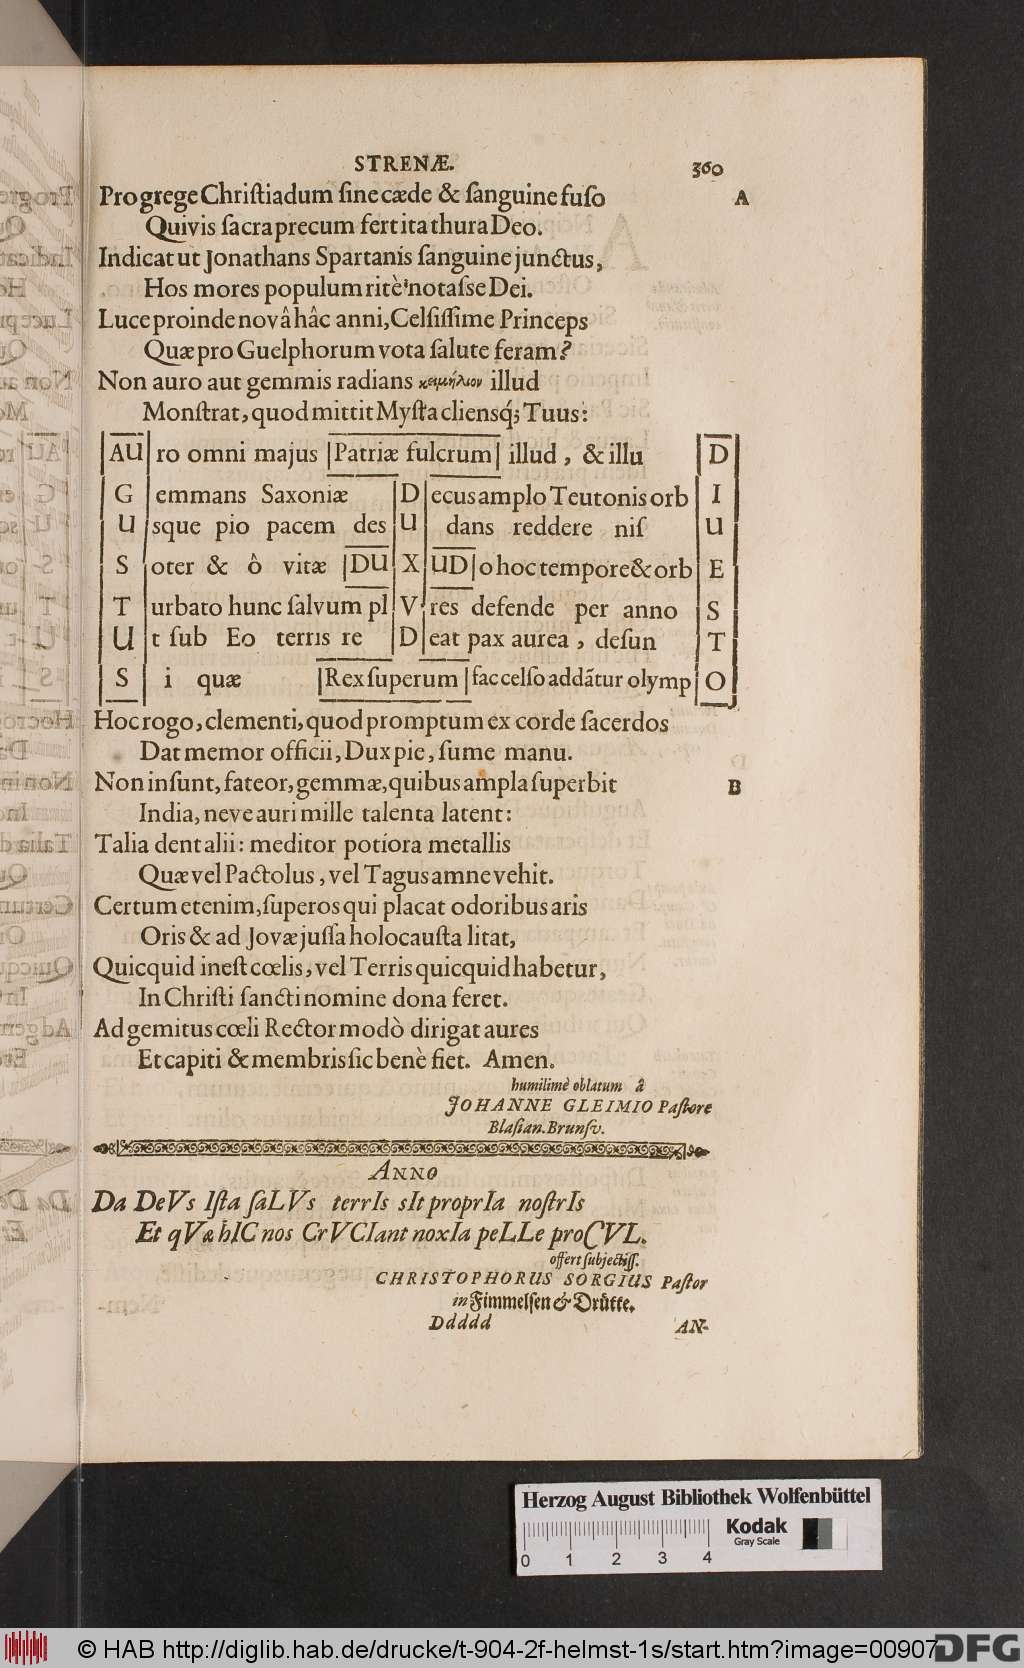 STRENÆ. 360
Pro grege Chriſtiadum ſine cæde & ſanguine fuſo A
Quivis ſacra precum fert ita thura Deo.
Indicat ut Jonathans Spartanis ſanguine junctus,
Hos mores populum ritè notaſse Dei.
Luce proinde novâ hâc anni, Celſiſſime Princeps
Quæ pro Guelphorum vota ſalute feram?
Non auro aut gemmis radians κειμήλιον illud
Monſtrat, quod mittit Myſta cliensq́; Tuus:
AU ro omni majus Patriæ fulcrum illud, & illu D
G emmans Saxoniæ D ecus amplo Teutonis orb I
U sque pio pacem des U dans reddere niſ U
S oter & ô vitæ DU X UD o hoc tempore & orb E
T urbato hunc ſalvum pl V res defende per anno S
U t ſub Eo terris re D eat pax aurea, deſun T
S i quæ Rex ſuperum fac celſo addātur olymp O
Hoc rogo, clementi, quod promptum ex corde ſacerdos
Dat memor officii, Dux pie, ſume manu.
Non inſunt, fateor, gemmæ, quibus ampla ſuperbit B
India, neve auri mille talenta latent:
Talia dent alii: meditor potiora metallis
Quæ vel Pactolus, vel Tagus amne vehit.
Certum etenim, ſuperos qui placat odoribus aris
Oris & ad Jovæ juſſa holocauſta litat,
Quicquid ineſt cœlis, vel Terris quicquid habetur,
In Chriſti ſancti nomine dona feret.
Ad gemitus cœli Rector modò dirigat aures
Et capiti & membris ſic benè fiet. Amen.
humilimè oblatum â
JOHANNE GLEIMIO Paſtore
Blaſian. Brunſv.
ANNO
Da DeVs Iſta ſaLVs terrIs sIt proprIa noſtrIs
Et qVæ hIC nos CrVCIant noxIa peLLe proCVL.
offert ſubjectiſſ.
CHRISTOPHORUS SORGIUS Paſtor
in Fimmelſen & Drütte.
Ddddd AN-
Herzog August Bibliothek Wolfenbüttel
Kodak
Gray Scale
0 1 2 3 4
© HAB http://diglib.hab.de/drucke/t-904-2f-helmst-1s/start.htm?image=00907
DFG